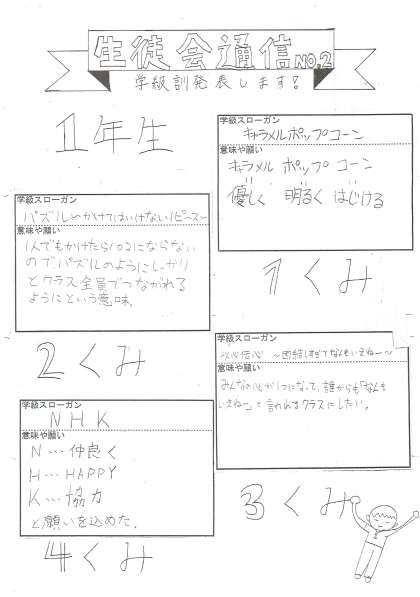 生徒会通信 NO.2
学級訓発表します!
1年生
学級スローガン
キャラメルポップコーン
意味や願い
キャラメル ポップ コーン
優しく 明るく はじける
1くみ
学級スローガン
パズル〜かけてはいけない1ピース〜
意味や願い
1人でもかけたら100にならない
のでパズルのようにしっかり
とクラス全員でつながれる
ようにという意味。
2くみ
学級スローガン
以心伝心 〜団結しすぎてなんもいえねー〜
意味や願い
みんなの心が1つになって、誰からも「なんも
いえねー」と言われるクラスにしたい。
3くみ
学級スローガン
NHK
意味や願い
N…仲良く
H…HAPPY
K…協力
と願いを込めた。
4くみ